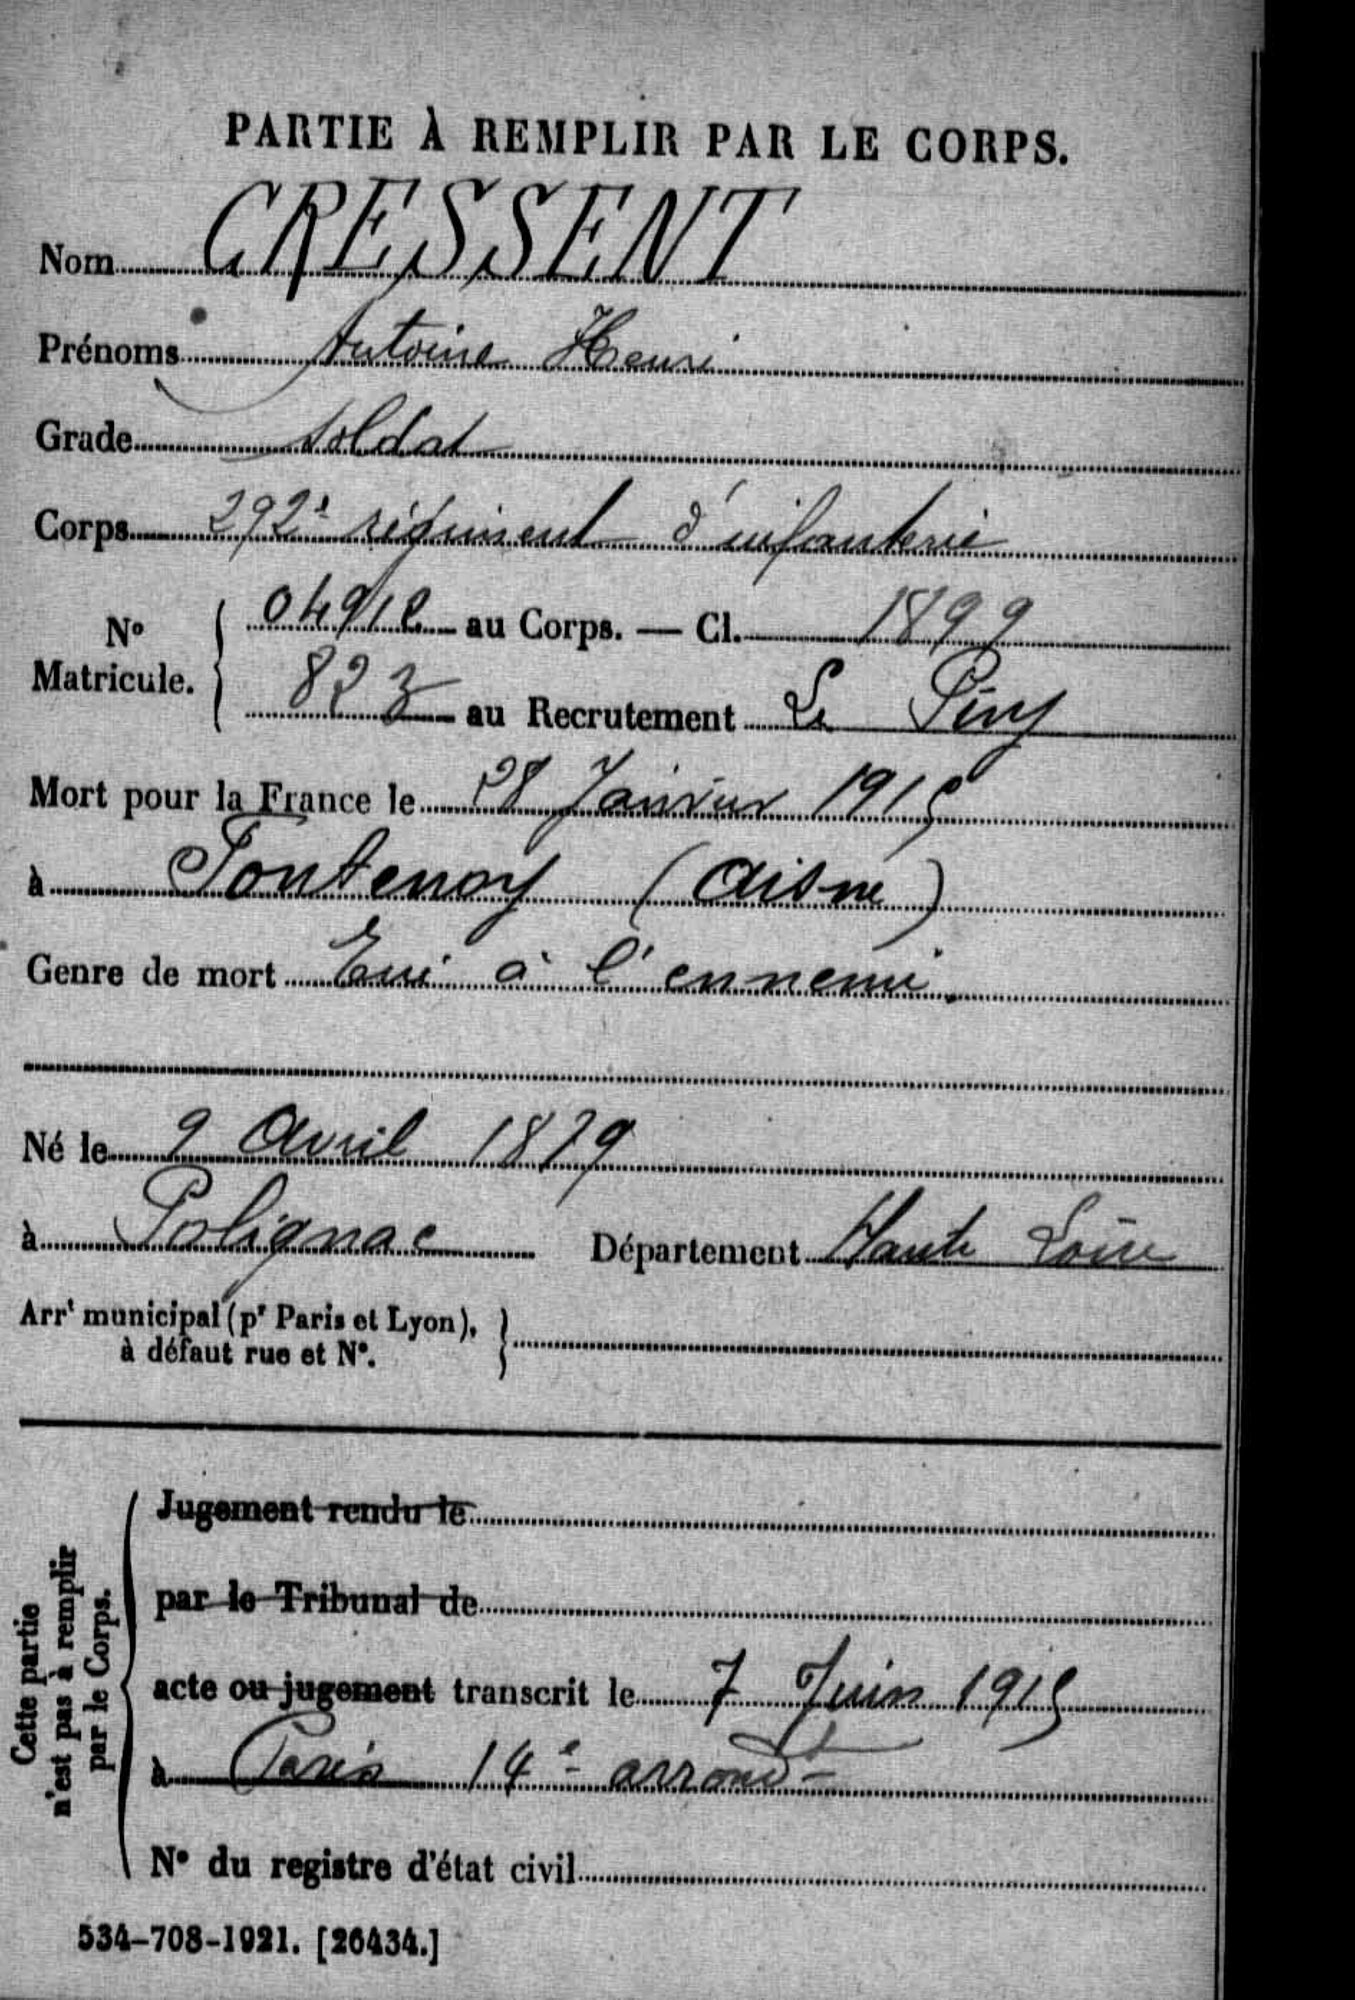 PARTIE À REMPLIR PAR LE CORPS.
Nom CRESSENT
Prénoms Antoine Henri
Grade Soldat
Corps 292e régiment d'infanterie
No Matricule. { au Corps. — Cl. 1899
823 au Recrutement Le Puy
Mort pour la France le 28 Janvier 1915
à Fontenoy (Aisne)
Genre de mort Tué à l'ennemi.
Né le 9 Avril 1879
à Polignac Département Haute Loire
Arrt municipal (pr Paris et Lyon), }
à défaut rue et No.
Cette partie n'est pas à remplir par le Corps.
Jugement rendu le
par le Tribunal de
acte ou jugement transcrit le 7 Juin 1915
à Paris 14e arrondt
No du registre d'état civil
534-708-1921. [26434.]